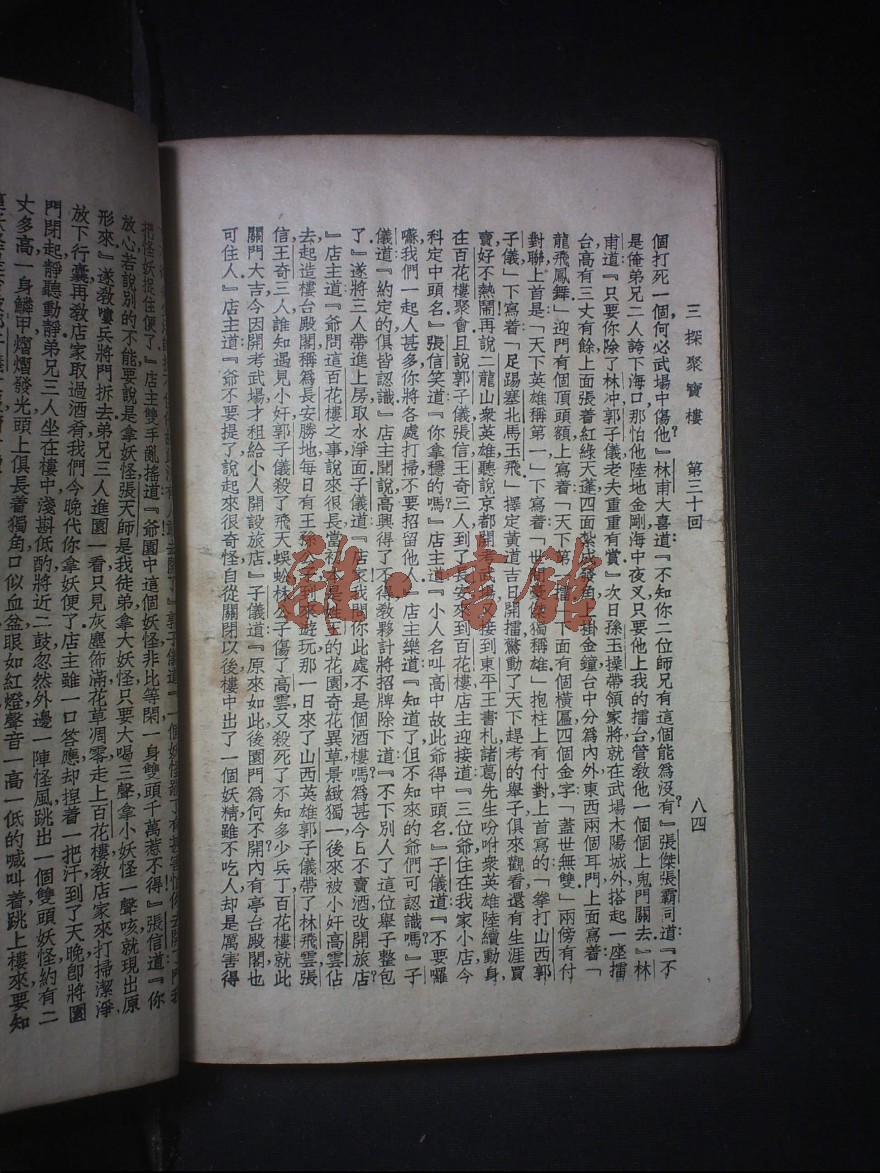 三探聚寶樓　第三十回　八四
個打死一個何必武場中傷他』林甫大喜道『不知你二位師兄有這個能爲沒有』張傑張霸司道『不
是俺弟兄二人誇下海口那怕他陸地金剛海中夜叉只要他上我的擂台管敎他一個個上鬼門關去』林
甫道『只要你除了林冲郭子儀老夫重重有賞』次日孫玉操帶領家將就在武場木陽城外搭起一座擂
台高有三丈有餘上面張着紅綠天蓬四面紮成發角掛金鐘台中分爲內外東西兩個耳門上面寫着「
龍飛鳳舞」迎門有個頂頭額上寫着「天下第一擂」下面有個橫匾四個金字「蓋世無雙」兩傍有付
對聯上首是「天下英雄稱第一」下寫着「世間豪傑獨稱雄」抱柱上有付對上首寫的「拳打山西郭
子儀」下寫着「足踢塞北馬玉飛」擇定黃道吉日開擂驚動了天下趕考的舉子俱來觀看還有生涯買
賣好不熱鬧再說二龍山衆英雄聽說京都開考武場接到東平王書札諸葛先生吩咐衆英雄陸續動身
在百花樓聚會且說郭子儀張信王奇三人到了長安來到百花樓店主迎接道『三位爺住在我家小店今
科定中頭名』張信笑道『你拿穩的嗎』店主道『小人名叫高中故此爺得中頭名』子儀道『不要囉
囌我們一起人甚多你將各處打掃不要招留他人』店主樂道『知道了但不知來的爺們可認識嗎』子
儀道『約定的俱皆認識』店主聞說高興得了不得敎夥計將招牌除下道『不下別人了這位舉子整包
了』遂將三人帶進上房取水淨面子儀道『店家我問你此處不是個酒樓嗎爲甚今日不賣酒改開旅店
』店主道『爺問這百花樓之事說來很長當初本是姓王的花園奇花異草景緻獨一後來被小奸高雲佔
去起造樓台殿閣稱爲長安勝地每日有王孫公子到來遊玩那一日來了山西英雄郭子儀帶了林飛雲張
信王奇三人誰知遇見小奸郭子儀殺了飛天蜈蚣林公子傷了高雲又殺死了不知多少兵丁百花樓就此
關門大吉今因開考武場才租給小人開設旅店』子儀道『原來如此後園門爲何不開內有亭台殿閣也
可住人』店主道『爺不要提了說起來很奇怪自從關閉以後樓中出了一個妖精雖不吃人却是厲害得
把怪妖捉住便了』店主雙手亂搖道『爺園中這個妖怪非比等閑一身雙頭千萬惹不得』張信道『你
放心若說別的不能要說是拿妖怪張天師是我徒弟拿大妖怪只要大喝三聲拿小妖怪一聲咳就現出原
形來』遂敎嘍兵將門拆去弟兄三人進園一看只見灰塵佈滿花草凋零走上百花樓敎店家來打掃潔淨
放下行囊再敎店家取過酒肴我們今晚代你拿妖便了店主雖一口答應却揑着一把汗到了天晚卽將園
門閉起靜聽動靜弟兄三人坐在樓中淺斟低酌將近二鼓忽然外邊一陣怪風跳出一個雙頭妖怪約有二
丈多高一身鱗甲熠熠發光頭上俱長着獨角口似血盆眼如紅燈聲音一高一低的喊叫着跳上樓來要知
雜·書館